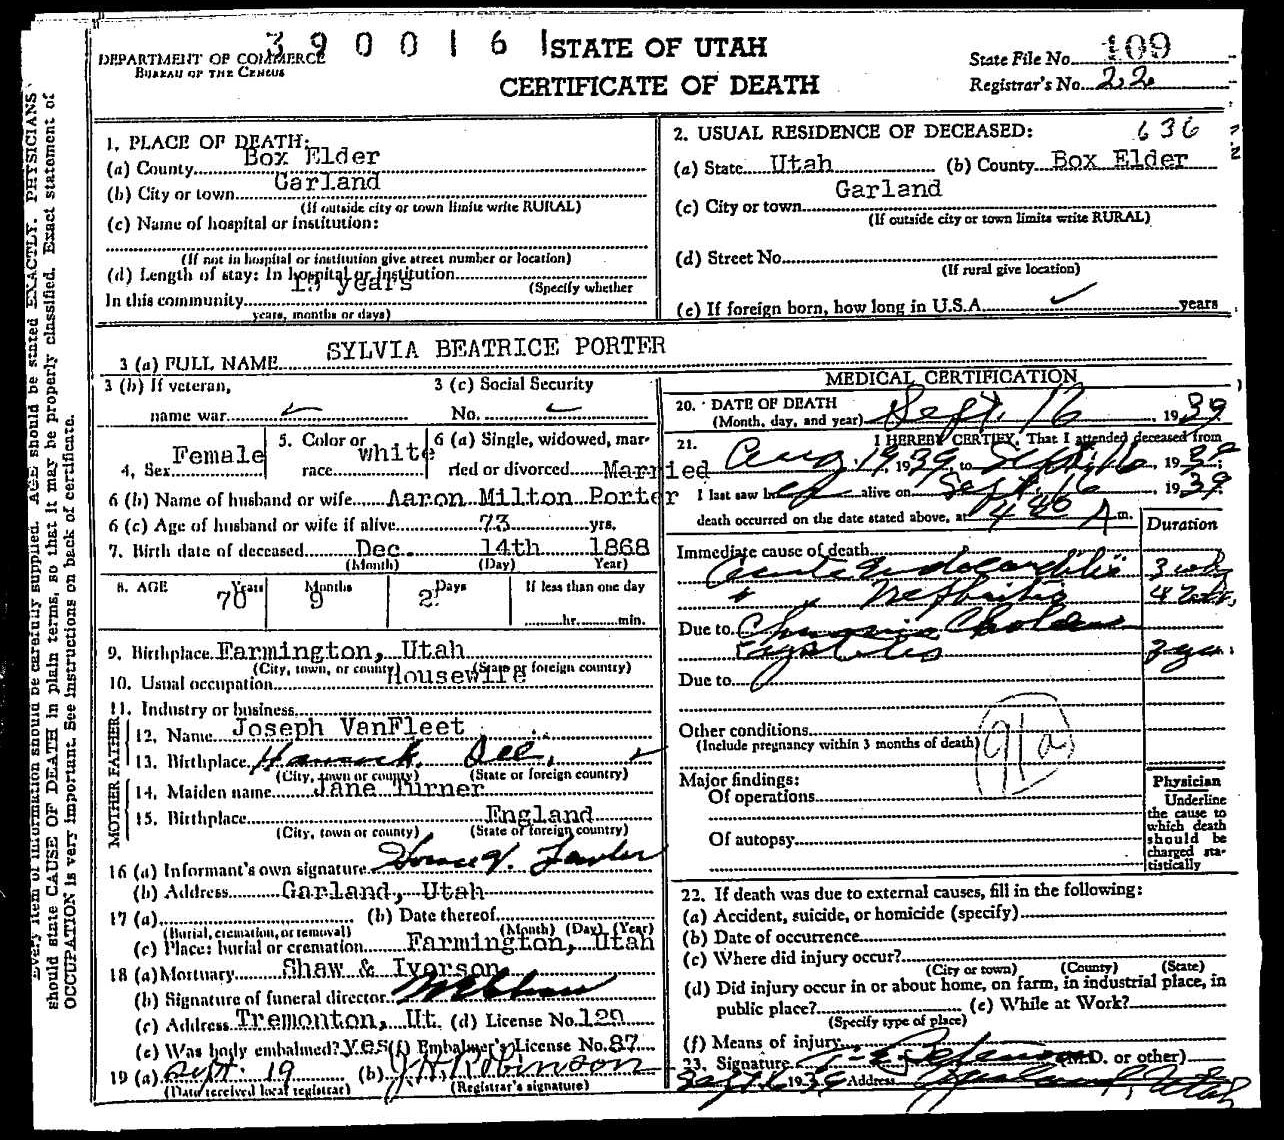 3900161 STATE OF UTAH
DEPARTMENT OF COMMERCE
BUREAU OF THE CENSUS
CERTIFICATE OF DEATH
State File No. 109
Registrar's No. 22
1. PLACE OF DEATH:
(a) County Box Elder
(b) City or town Garland
(If outside city or town limits write RURAL)
(c) Name of hospital or institution:
(If not in hospital or institution give street number or location)
(d) Length of stay: In hospital or institution
(Specify whether
In this community 15 years
years, months or days)
2. USUAL RESIDENCE OF DECEASED: 636
(a) State Utah (b) County Box Elder
(c) City or town Garland
(If outside city or town limits write RURAL)
(d) Street No.
(If rural give location)
(e) If foreign born, how long in U.S.A. ✓ years
3 (a) FULL NAME SYLVIA BEATRICE PORTER
3 (b) If veteran, 3 (c) Social Security
name war ✓ No. ✓
4. Sex Female 5. Color or race white 6 (a) Single, widowed, married or divorced Married
6 (b) Name of husband or wife Aaron Milton Porter
6 (c) Age of husband or wife if alive 73 yrs.
7. Birth date of deceased Dec. 14th 1868
(Month) (Day) Year)
8. AGE Years 70 Months 9 Days 2 If less than one day
hr. min.
9. Birthplace Farmington, Utah
(City, town, or county) (State or foreign country)
10. Usual occupation Housewife
11. Industry or business
FATHER
12. Name Joseph VanFleet
13. Birthplace Hancock Ill. ✓
(City, town or county) (State or foreign country)
MOTHER
14. Maiden name Jane Turner
15. Birthplace England
(City, town or county) (State or foreign country)
16 (a) Informant's own signature
(b) Address Garland, Utah
17 (a) (b) Date thereof
(Burial, cremation, or removal) (Month) (Day) (Year)
(c) Place: burial or cremation Farmington, Utah
18 (a) Mortuary Shaw & Iverson
(b) Signature of funeral director
(c) Address Tremonton, Ut. (d) License No. 129
(e) Was body embalmed? yes (f) Embalmer's License No. 87
19 (a) Sept. 19 (b) J H Robinson
(Date received local registrar) (Registrar's signature)
MEDICAL CERTIFICATION
20. DATE OF DEATH
(Month, day, and year) Sept. 16 1939
21. I HEREBY CERTIFY, That I attended deceased from
Aug. 19, 1939, to Sept. 16 1939;
I last saw her alive on Sept. 16 1939
death occurred on the date stated above, at 4 A m.
Duration
Immediate cause of death
Acute Endocarditis 3 wks
" " Nefhritis 4 wks,
Due to Chronic Cholecystitis 3 yrs.
Due to
Other conditions
(Include pregnancy within 3 months of death)
91a
Major findings:
Of operations
Of autopsy
Physician
Underline
the cause to
which death
should be
charged statistically
22. If death was due to external causes, fill in the following:
(a) Accident, suicide, or homicide (specify)
(b) Date of occurrence
(c) Where did injury occur?
(City or town) (County) (State)
(d) Did injury occur in or about home, on farm, in industrial place, in
public place? (e) While at Work?
(Specify type of place)
(f) Means of injury
23. Signature (M.D. or other)
Sept 16 1939 Address Utah
Every item of information should be carefully supplied. AGE should be stated EXACTLY. PHYSICIANS
should state CAUSE OF DEATH in plain terms, so that it may be properly classified. Exact statement of
OCCUPATION is very important. See instructions on back of certificate.